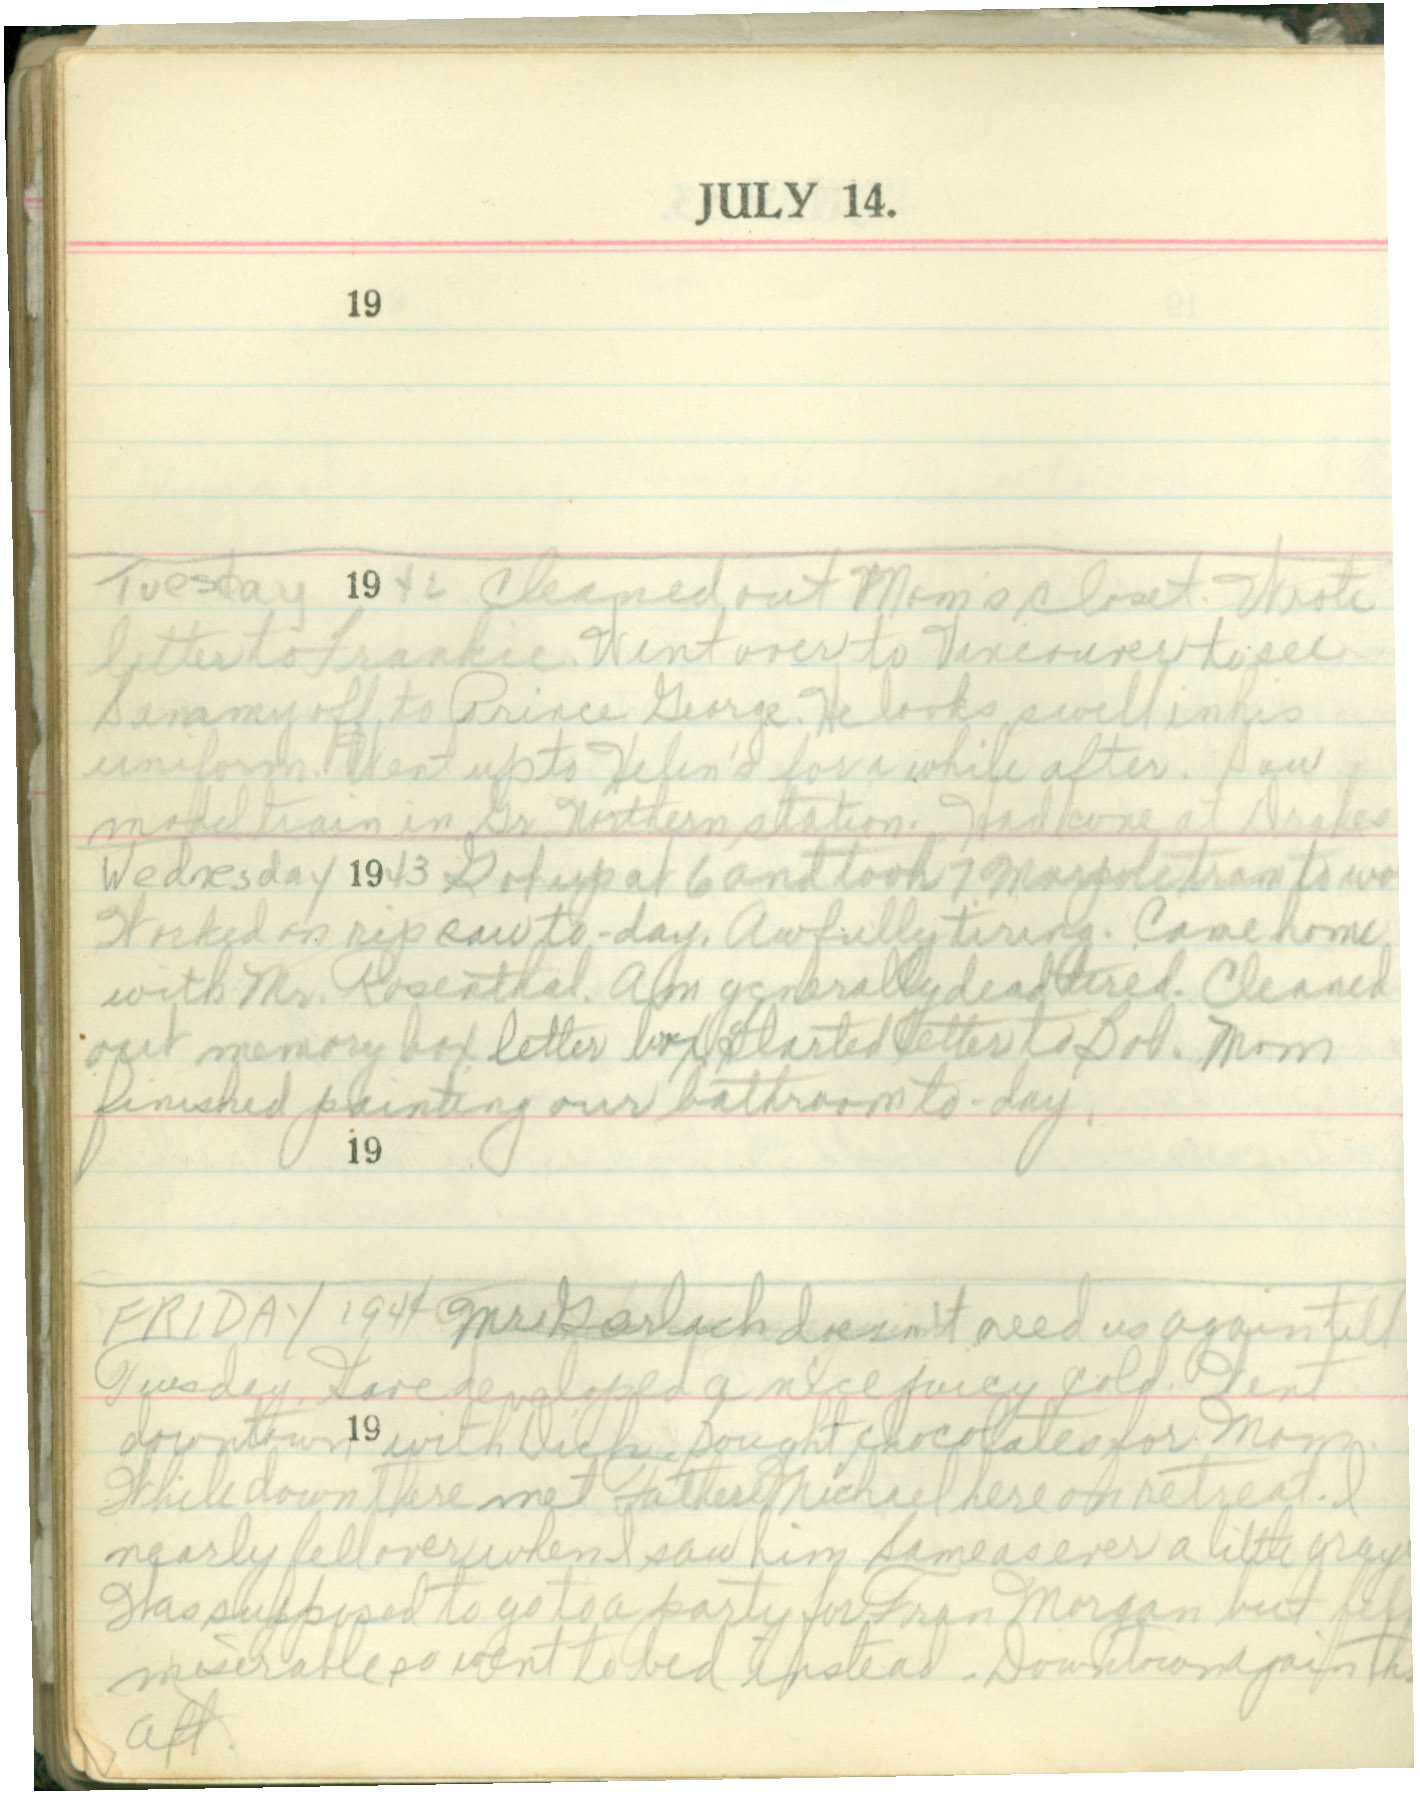 JULY 14.
19
Tuesday 1942 Cleaned out Mom's closet. Wrote
letter to Frankie. Went over to Vancouver to see
Sammy off to Prince George. He looks swell in his
uniform. Went up to Helen's for a while after. Saw
model train in Gr. Northern station. Had cone at Drakes
Wednesday 1943 Got up at 6 and took 7 Marpole tram to wo
Worked on rip saw to-day. Awfully tiring. Came home
with Mr. Rosenthal. Am generally dead tired. Cleaned
out memory box letter box. Started letter to Bob. Mom
finished painting our bathroom to-day.
19
FRIDAY 1944 Mr. Gerlach doesn't need us again till
Tuesday. Have developed a nice juicy cold. Went
19
downtown with Dick. Bought chocolates for Mom.
While down there met Father Michael here on retreat. I
nearly fell over when I saw him same as ever a little gray
Was supposed to go to a party for Fran Morgan but felt
miserable so went to bed instead. Downtown again this
aft.